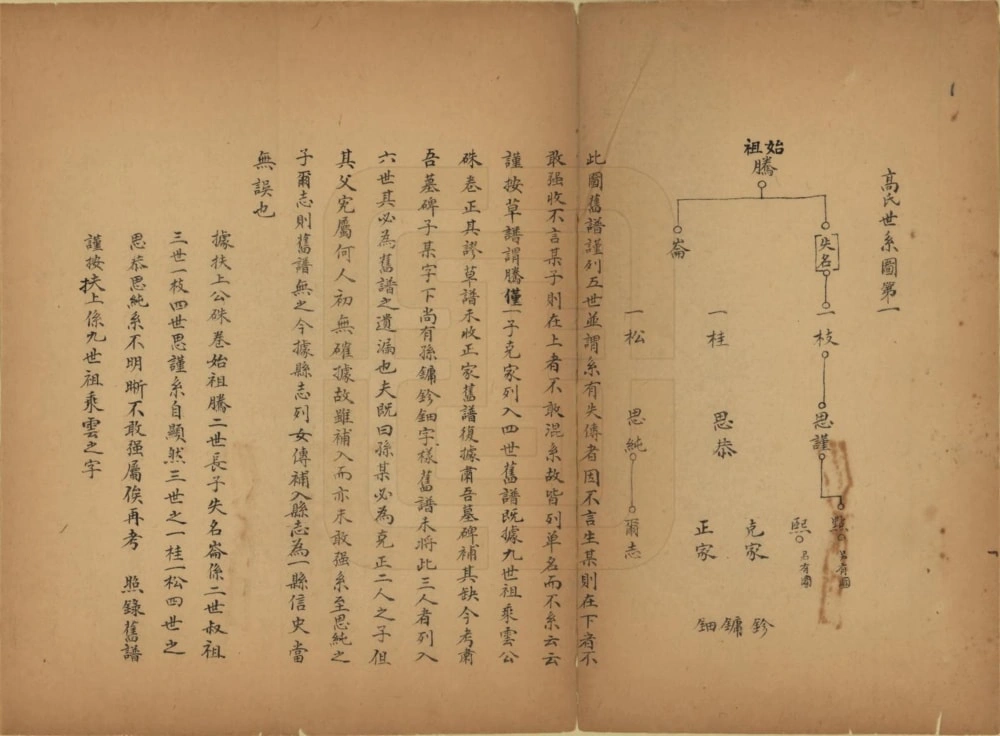 高氏世系圖第一
始祖
騰
失名 一枝 思謹
另有圖
熙 另有圖
崙 一桂 思恭 克家 鉁
正家 鏞
鈿
一松 思純 爾志
此圖舊譜謹列五世並謂系有失傳者因不言生某則在下者不
敢强收不言某子則在上者不敢混系故皆列单名而不系云云
謹按草譜謂騰僅一子克家列入四世舊譜既據九世祖乘雲公
硃卷正其謬草譜未收正家舊譜復據肅吾墓碑補其缺今考肅
吾墓碑子某字下尚有孫鏞鉁鈿字樣舊譜未將此三人者列入
六世其必為舊譜之遺漏也夫既曰孫某必為克正二人之子但
其父究屬何人初無確據故雖補入而亦未敢强系至思純之
子爾志則舊譜無之今據縣志列女傳補入縣志為一縣信史當
無誤也
據扶上公硃卷始祖騰二世長子失名崙係二世叔祖
三世一枝四世思謹系自顯然三世之一桂一松四世之
思恭思純系不明晰不敢强屬俟再考 照錄舊譜
謹按扶上係九世祖乘雲之字